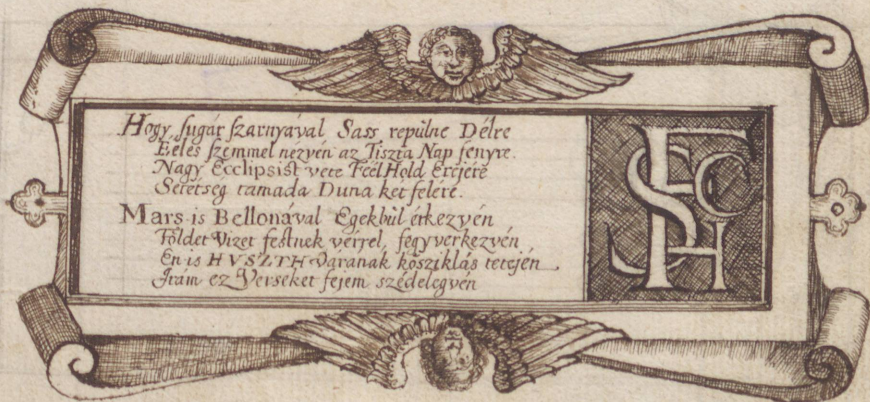 Hogy sugár szarnyával Sass repülne Délre
Eéles szemmel nézvén az Tiszta Nap fenyre.
Nagy Ecclipsist vete Féél Hold Erejere
Setetség tamada Duna ket felere.
Mars is Bellonával Egekbül érkezvén
Földet Vizet festnek vérrel, fegyverkezvén
En is HVSZTH Varanak kősziklás tetején
Irám ez Verseket fejem szédelegvén